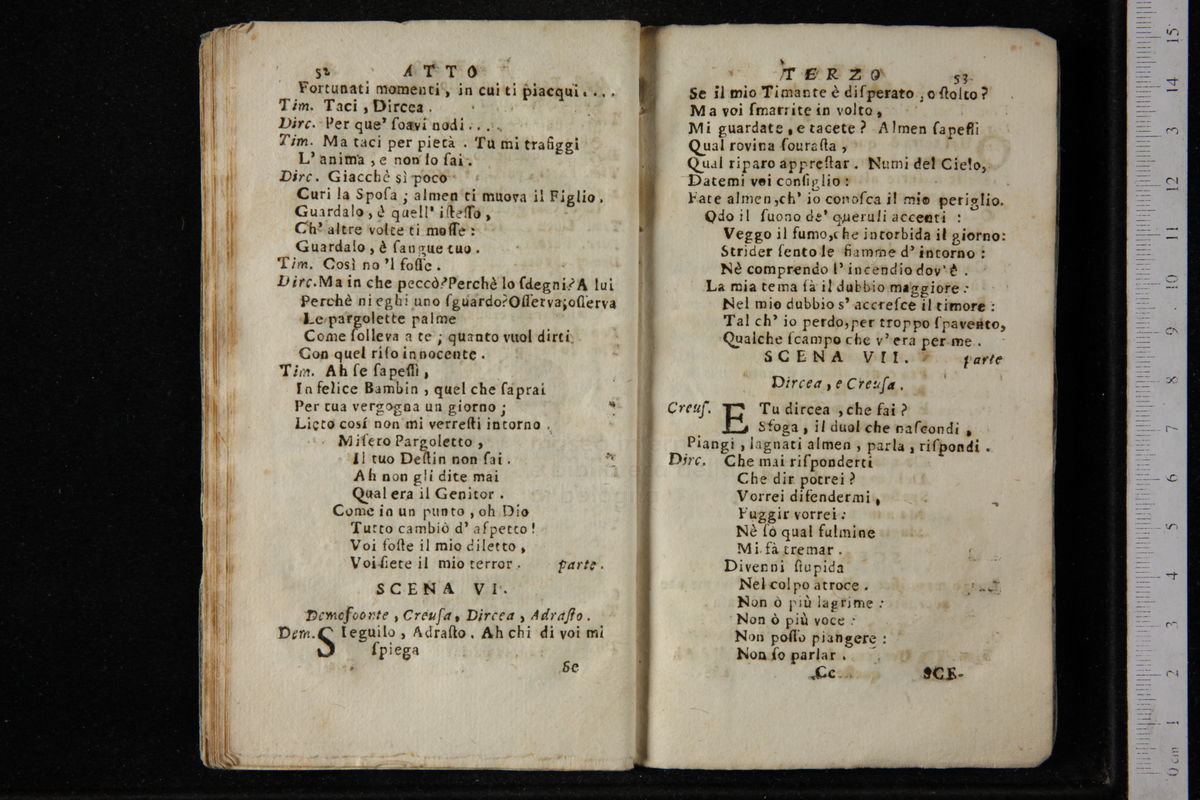 52 ATTO
Fortunati momenti, in cui ti piacqui....
Tim. Taci, Dircea.
Dirc. Per que' ſoavi nodi....
Tim. Ma taci per pietà. Tu mi trafiggi
L' anima, e non lo ſai.
Dirc. Giacchè sì poco
Curi la Spoſa; almen ti muova il Figlio.
Guardalo, è quell' iſteſſo,
Ch' altre volte ti moſſe:
Guardalo, è ſangue tuo.
Tim. Così no 'l foſſe.
Dirc. Ma in che peccò? Perchè lo ſdegni? A lui
Perchè nieghi uno ſguardo? Oſſerva; oſſerva
Le pargolette palme
Come ſolleva a te; quanto vuol dirti
Con quel riſo innocente.
Tim. Ah ſe ſapeſſi,
Infelice Bambin, quel che ſaprai
Per tua vergogna un giorno;
Lieto cosí non mi verreſti intorno.
Miſero Pargoletto,
Il tuo Deſtin non ſai.
Ah non gli dite mai
Qual era il Genitor.
Come in un punto, oh Dio
Tutto cambiò d' aſpetto!
Voi foſte il mio diletto,
Voi ſiete il mio terror. parte.
SCENA VI.
Demofoonte, Creuſa, Dircea, Adraſto.
Dem. SIeguilo, Adraſto. Ah chi di voi mi
ſpiega
Se
TERZO 53
Se il mio Timante è diſperato, o ſtolto?
Ma voi ſmarrite in volto,
Mi guardate, e tacete? Almen ſapeſſi
Qual rovina ſouraſta,
Qual riparo appreſtar. Numi del Cielo,
Datemi voi conſiglio:
Fate almen, ch' io conoſca il mio periglio.
Odo il ſuono de' queruli accenti:
Veggo il fumo, che intorbida il giorno:
Strider ſento le fiamme d' intorno:
Nè comprendo l' incendio dov' è.
La mia tema fà il dubbio maggiore:
Nel mio dubbio s' accreſce il timore:
Tal ch' io perdo, per troppo ſpavento,
Qualche ſcampo che v' era per me.
SCENA VII. parte
Dircea, e Creuſa.
Creuſ. E Tu dircea, che fai?
Sfoga, il duol che naſcondi,
Piangi, lagnati almen, parla, riſpondi.
Dirc. Che mai riſponderti
Che dir potrei?
Vorrei difendermi,
Fuggir vorrei:
Nè ſò qual fulmine
Mi fà tremar.
Divenni ſtupida
Nel colpo atroce.
Non ò più lagrime:
Non ò più voce:
Non poſſo piangere:
Non ſo parlar.
Cc SCE-
15
14
13
12
11
10
9
8
7
6
5
4
3
2
1
0 cm